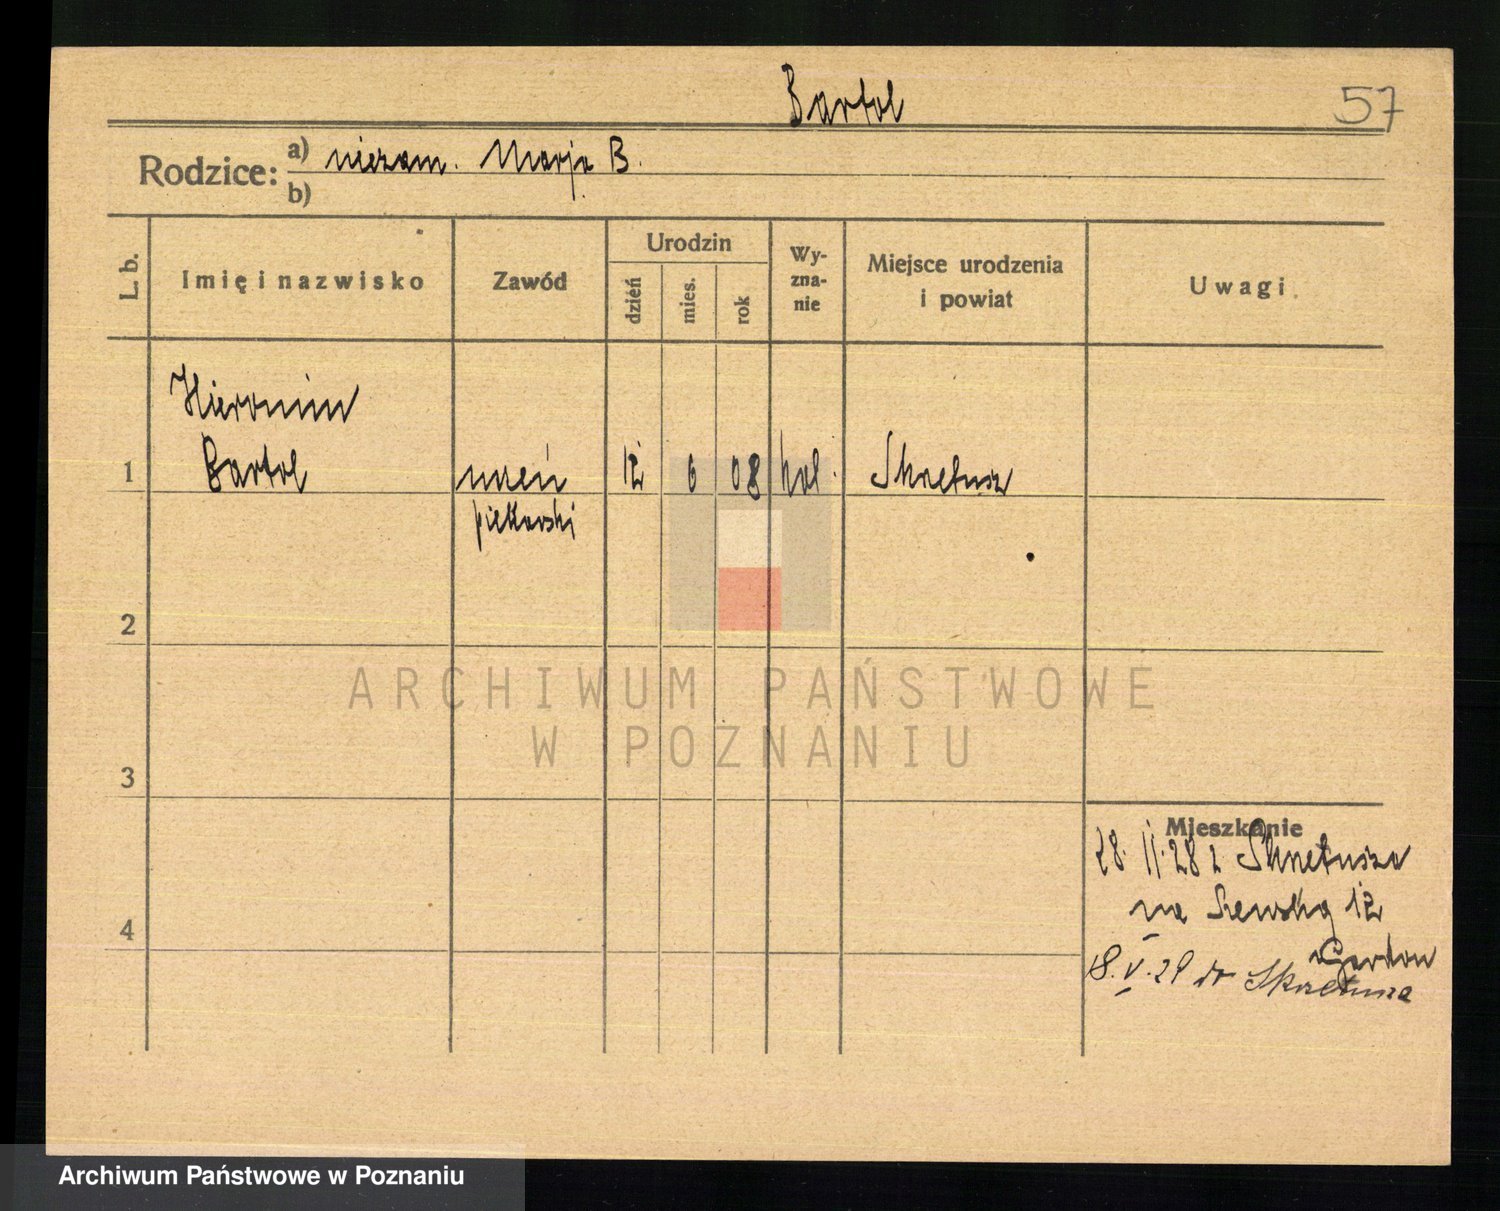 Bartol
57
Rodzice:
a) niezam. Marja B.
b)
L. b.
Imię i nazwisko
Zawód
Urodzin
dzień
mies.
rok
Wy-
zna-
nie
Miejsce urodzenia
i powiat
Uwagi
Hieronim
1 Bartol uczeń 12 6 08 kat. Skrzetusz
piekarski
2
3
4
Mieszkanie
28. 11. 28 z Skrzetusza
na Szewską 12
Gordon
18.V.29 do Skrzetusza
ARCHIWUM PAŃSTWOWE
W POZNANIU
Archiwum Państwowe w Poznaniu